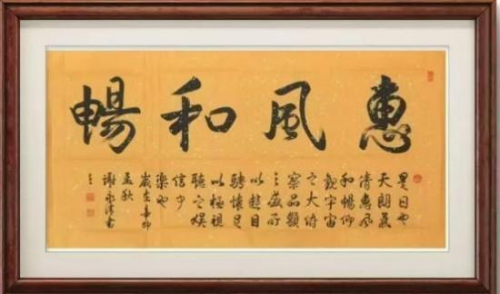 惠風和暢
是日也
天朗氣
清惠風
和暢仰
觀宇宙
之大俯
察品類
之盛所
以遊目
騁懷足
以極視
聽之娛
信可
樂也
歲在辛卯
孟秋